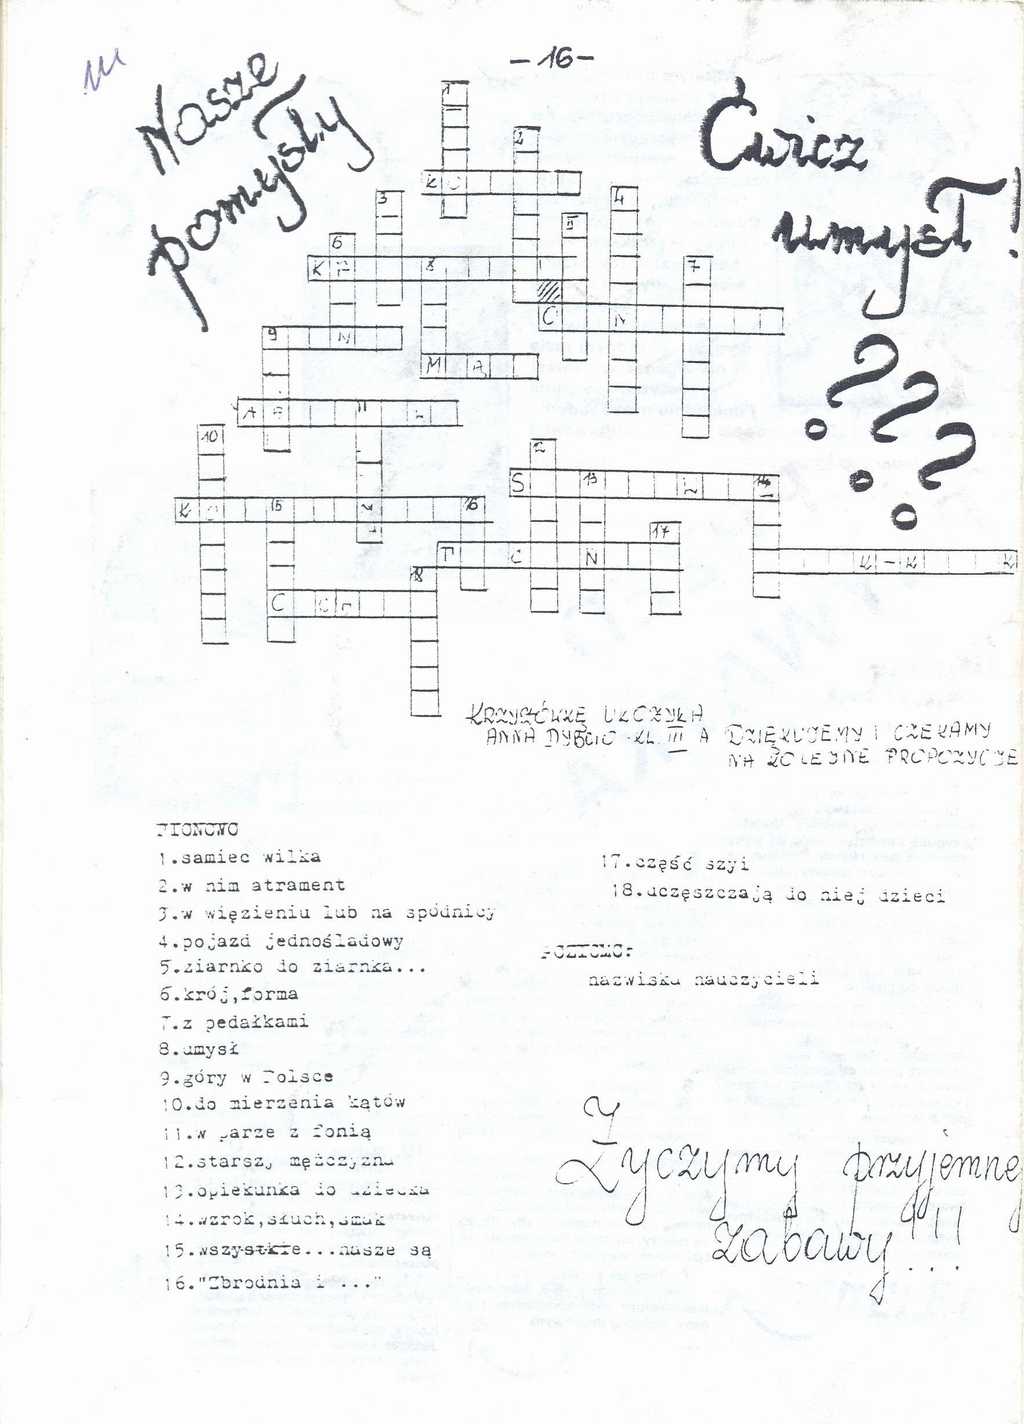 -16-
Nasze
pomysły
Ćwicz
umysł!
???
1
2
K O
3
4
II
6
K P 8
7
C N
9 N
M A
A B 11 L
10
2
S 13 L 14
K O 15 Y 16
17
T C N
K-K K
18
C G O
KRZYŻÓWKĘ UŁOŻYŁA
ANNA DYBCIO KL. III A DZIĘKUJEMY I CZEKAMY
NA KOLEJNE PROPOZYCJE
PIONOWO
1.samiec wilka
2.w nim atrament
3.w więzieniu lub na spódnicy
4.pojazd jednośladowy
5.ziarnko do ziarnka...
6.krój,forma
7.z pedałkami
8.umysł
9.góry w Polsce
10.do mierzenia kątów
11.w parze z fonią
12.starszy mężczyzna
13.opiekunka do dziecka
14.wzrok,słuch,smak
15.wszystkie...nasze są
16."Zbrodnia i ..."
17.część szyi
18.uczęszczają do niej dzieci
POZIOMO:
nazwiska nauczycieli
Życzymy przyjemnej
zabawy!!!